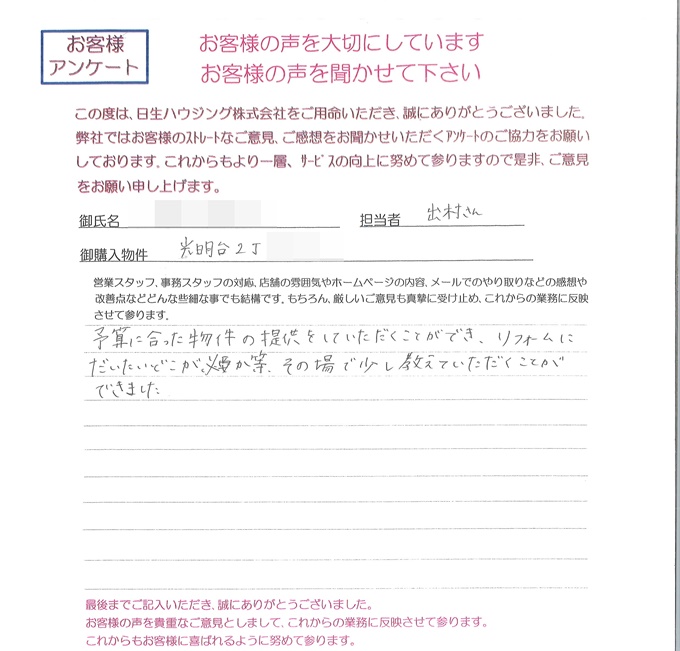 お客様
アンケート
お客様の声を大切にしています
お客様の声を聞かせて下さい
この度は、日生ハウジング株式会社をご用命いただき、誠にありがとうございました。
弊社ではお客様のストレートなご意見、ご感想をお聞かせいただくアンケートのご協力をお願い
しております。これからもより一層、サービスの向上に努めて参りますので是非、ご意見
をお願い申し上げます。
御氏名
担当者 出村さん
御購入物件 光明台2丁
営業スタッフ、事務スタッフの対応、店舗の雰囲気やホームページの内容、メールでのやり取りなどの感想や
改善点などどんな些細な事でも結構です。もちろん、厳しいご意見も真摯に受け止め、これからの業務に反映
させて参ります。
予算に合った物件の提供をしていただくことができ、リフォームに
だいたいどこが必要か等、その場で少し教えていただくことが
できました
最後までご記入いただき、誠にありがとうございました。
お客様の声を貴重なご意見としまして、これからの業務に反映させて参ります。
これからもお客様に喜ばれるように努めて参ります。